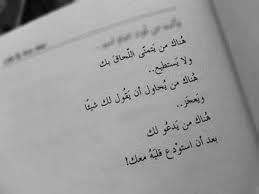 هُناك من يَتمنّى اللّحاقَ بك
ولا يَستطيع..
هُناك من يُحاول أن يَقُول لك شيئًا
ويَعجَز..
هُناك من يَدعُو لك
بعد أن استودَع قلبَهُ معك!